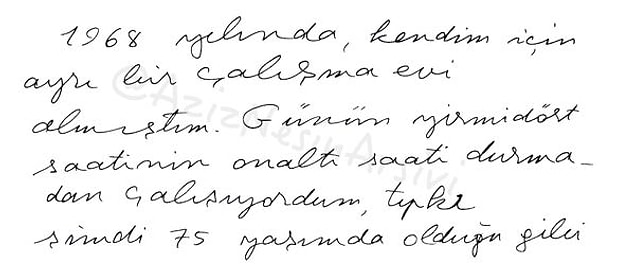 1968 yılında, kendim için
ayrı bir çalışma evi
almıştım. Günün yirmidört
saatinin onaltı saati durma-
dan çalışıyordum, tıpkı
şimdi 75 yaşımda olduğu gibi
@AzizNesinArsivi